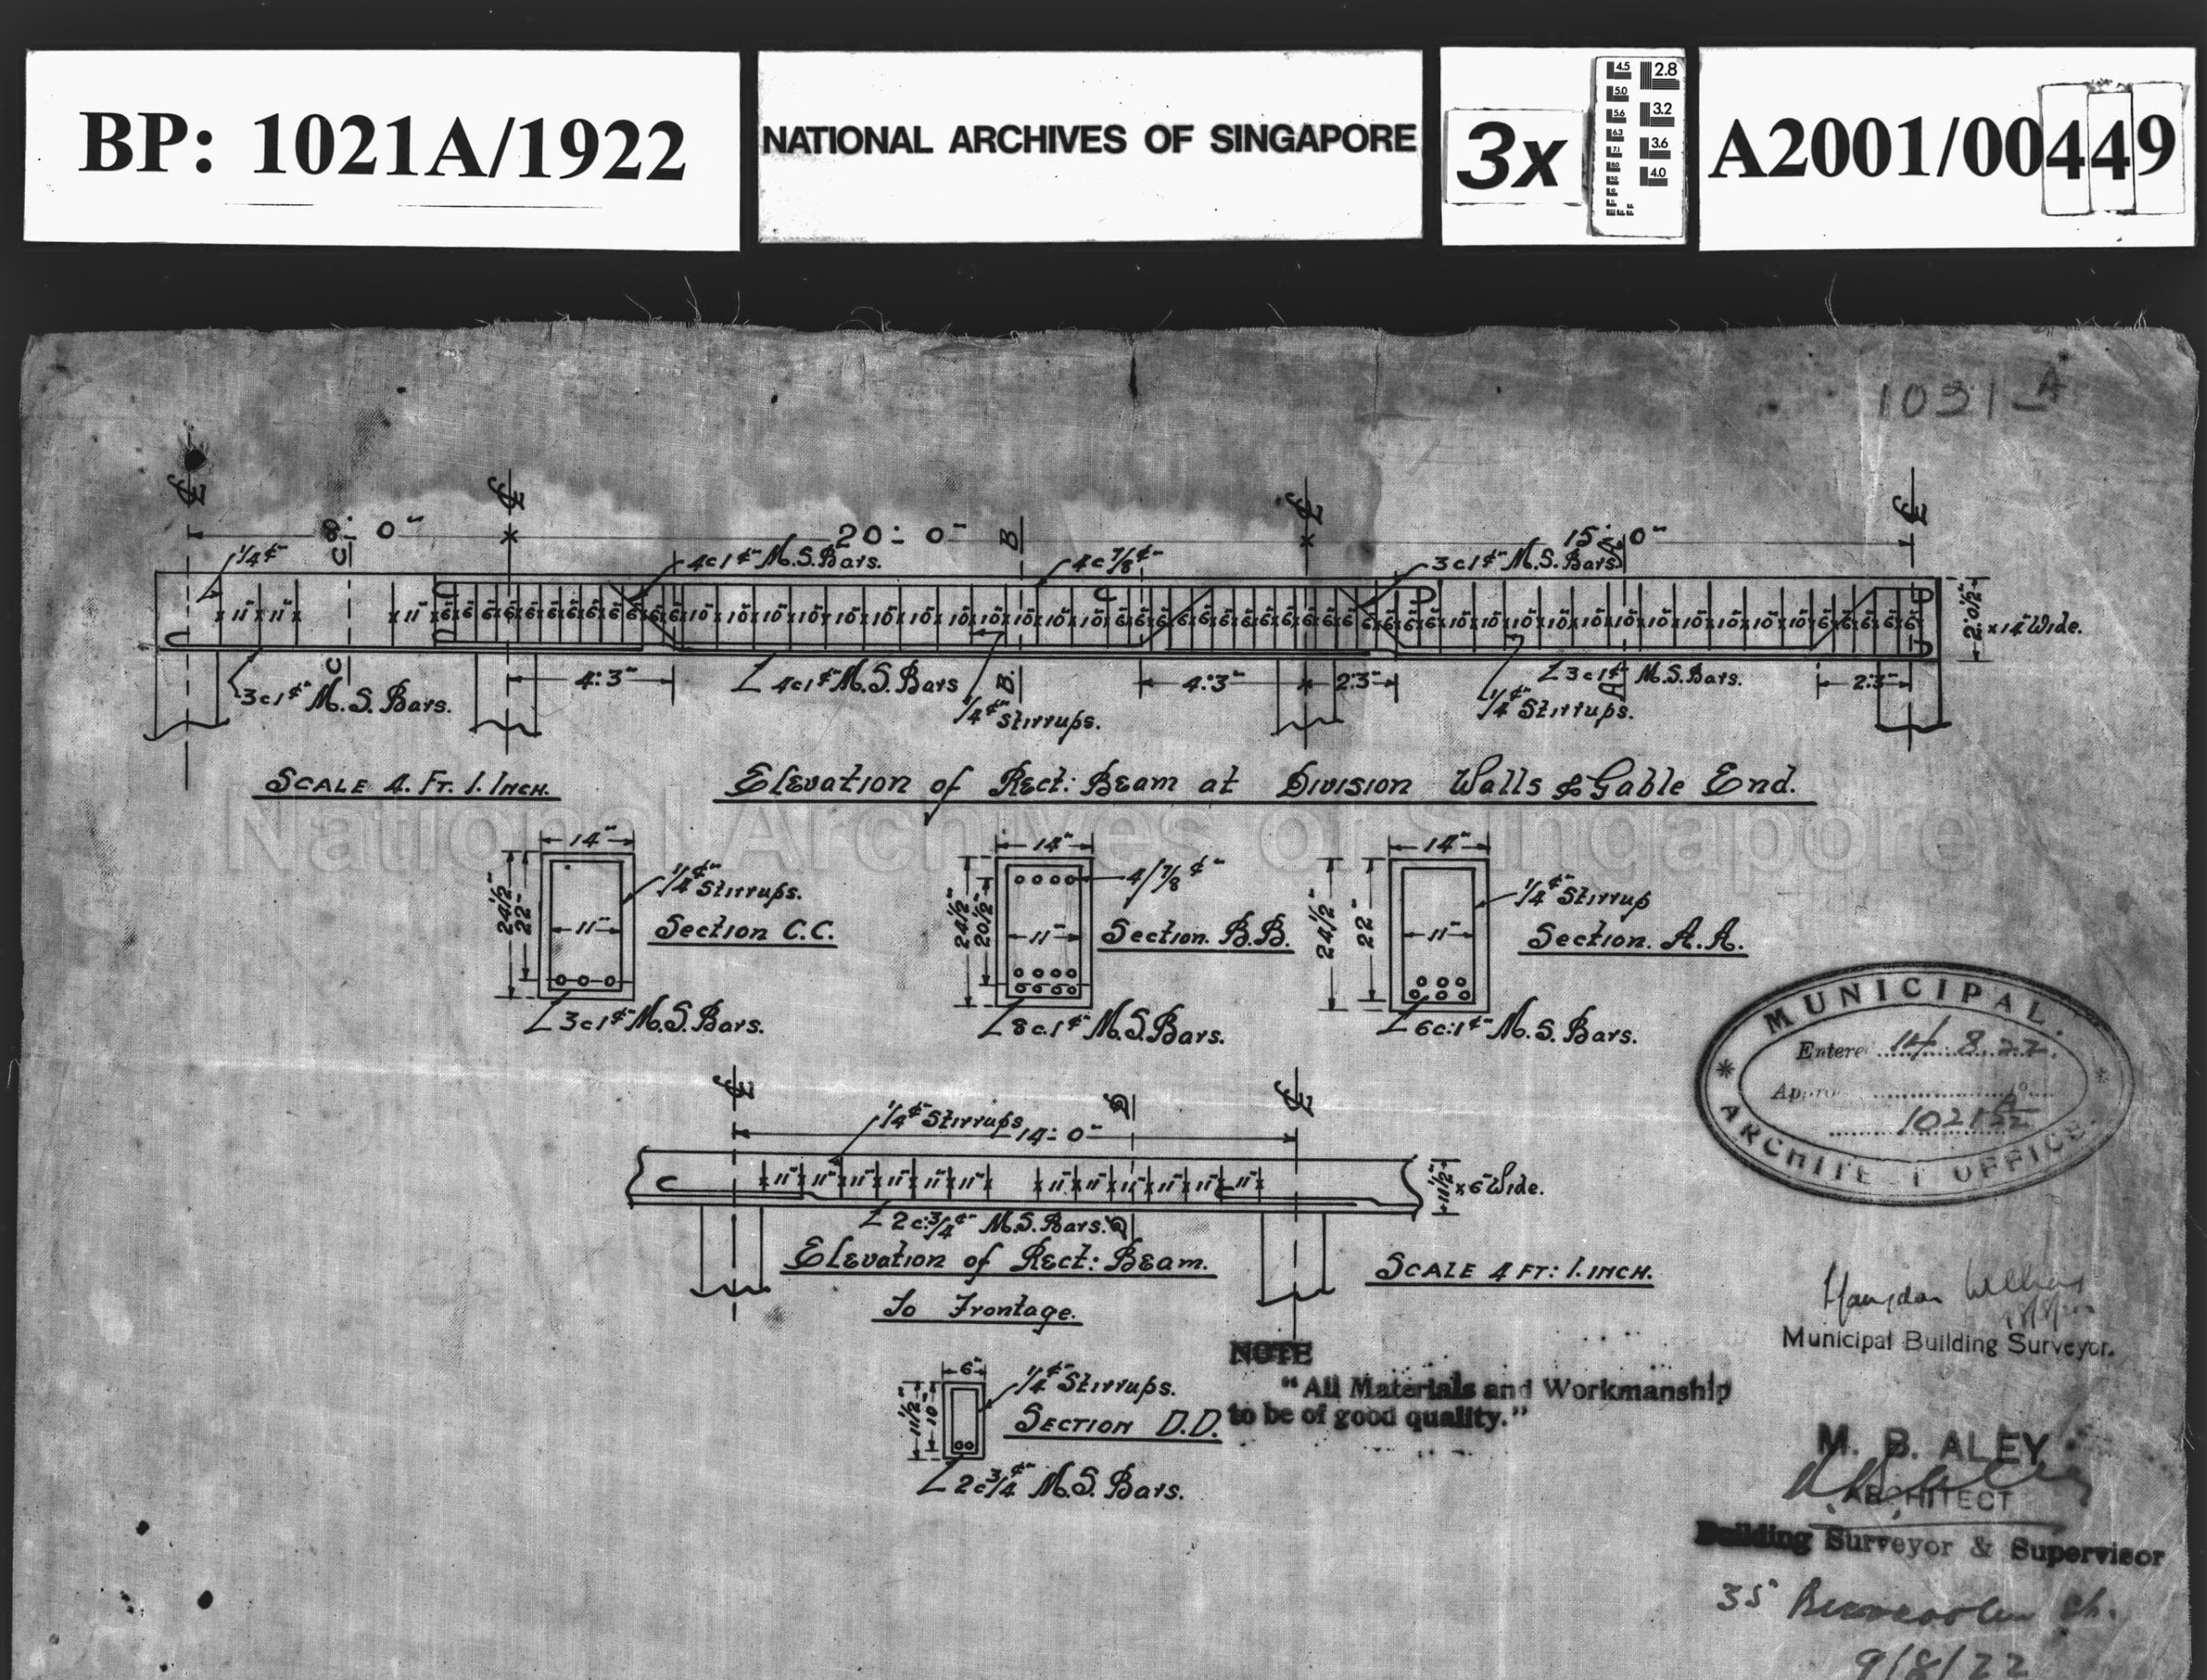 BP: 1021A/1922
NATIONAL ARCHIVES OF SINGAPORE
3x
4.5 2.8
5.0
5.6 3.2
6.3
7.1 3.6
8.0
4.0
A2001/00449
1031 A
8'-0"
20'-0"
15'-0"
C
B
1/4"
4c1" M.S.Bars.
4c7/8"
3c1" M.S.Bars.
11" 11" 11" 6" 6" 6" 6" 6" 6" 6" 6" 6" 6" 6" 10" 10" 10" 10" 10" 10" 10" 10" 10" 10" 10" 6" 6" 6" 6" 6" 6" 6" 6" 6" 6" 6" 6" 10" 10" 10" 10" 10" 10" 10" 10" 10" 10" 6" 6" 6" 6" 6"
2'.0½" x 14" Wide.
C
3c1" M.S.Bars.
4'.3"
4c1" M.S.Bars
B
1/4" Stirrups.
4'.3"
2'.3"
1/4" Stirrups.
3c1" M.S.Bars.
A
2'.3"
SCALE 4. FT. 1. INCH.
Elevation of Rect: Beam at Division Walls & Gable End.
National Archives of Singapore
14"
24½"
22"
11"
1/4" Stirrups.
Section C.C.
3c1" M.S.Bars.
14"
24½"
20½"
11"
4/7/8"
Section. B.B.
8c.1" M.S.Bars.
14"
24½"
22"
11"
1/4" Stirrup
Section. A.A.
6c:1" M.S.Bars.
MUNICIPAL.
Entere 14.8.22.
Appro
1021A/22
ARCHITE T OFFICE
1/4" Stirrups
14'-0"
D
11" 11" 11" 11" 11" 11" 11" 11" 11" 11" 11" 11"
11½" x 6" Wide.
2c:3/4" M.S.Bars.
D
Elevation of Rect: Beam.
To Frontage.
SCALE 4 FT: 1. INCH.
Municipal Building Surveyor.
NOTE
"All Materials and Workmanship
to be of good quality."
6"
11½"
10"
1/4" Stirrups.
SECTION D.D.
2c3/4" M.S.Bars.
M. B. ALEY
ARCHITECT
Building Surveyor & Supervisor
35
9/8/22